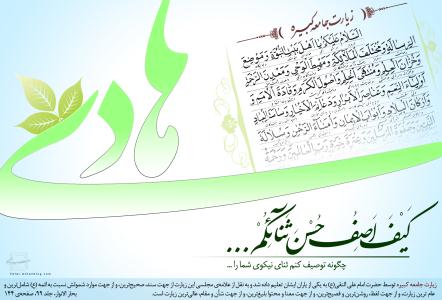 زیارت جامعه کبیره
السَّلامُ عَلَیْکُمْ یا اَهْلَ بَیْتِ النُّبُوَّةِ وَ مَوْضِعَ
الرِّسالَةِ وَ مُخْتَلَفَ الْمَلائِکَةِ وَ مَهْبِطَ الْوَحْیِ وَ مَعْدِنَ الرَّحْمَةِ
وَ خُزّانَ الْعِلْمِ وَ مُنْتَهَی الْحِلْمِ وَ اُصُولَ الْکَرَمِ وَ قادَةَ الْاُمَمِ وَ
اَوْلِیاءَ النِّعَمِ وَ عَناصِرَ الْاَبْرارِ وَ دَعائِمَ الْاَخْیارِ وَ ساسَةَ الْعِبادِ
وَ اَرْکانَ الْبِلادِ وَ اَبْوابَ الْایمانِ وَ اُمَناءَ الرَّحْمنِ وَ سُلالَةَ
هادی
کَیْفَ اَصِفُ حُسْنَ ثَنائِکُمْ ...
چگونه توصیف کنم ثنای نیکوی شما را ...
زیارت جامعه کبیره توسط حضرت امام علی النقی(ع) به یکی از یاران ایشان تعلیم داده شد و به نقل از علامه‌ی مجلسی این زیارت از جهت سند، صحیح‌ترین، و از جهت موارد شمولش نسبت به ائمه (ع) شامل‌ترین و
عام ترین زیارت، و از جهت لفظ، روشن‌ترین و فصیح‌ترین، و از جهت معنا و محتوا بلیغ‌ترین، و از جهت شأن و مقام، عالی‌ترین زیارت است.
بحار الانوار، جلد ۹۹، صفحه‌ی ۱۴۴